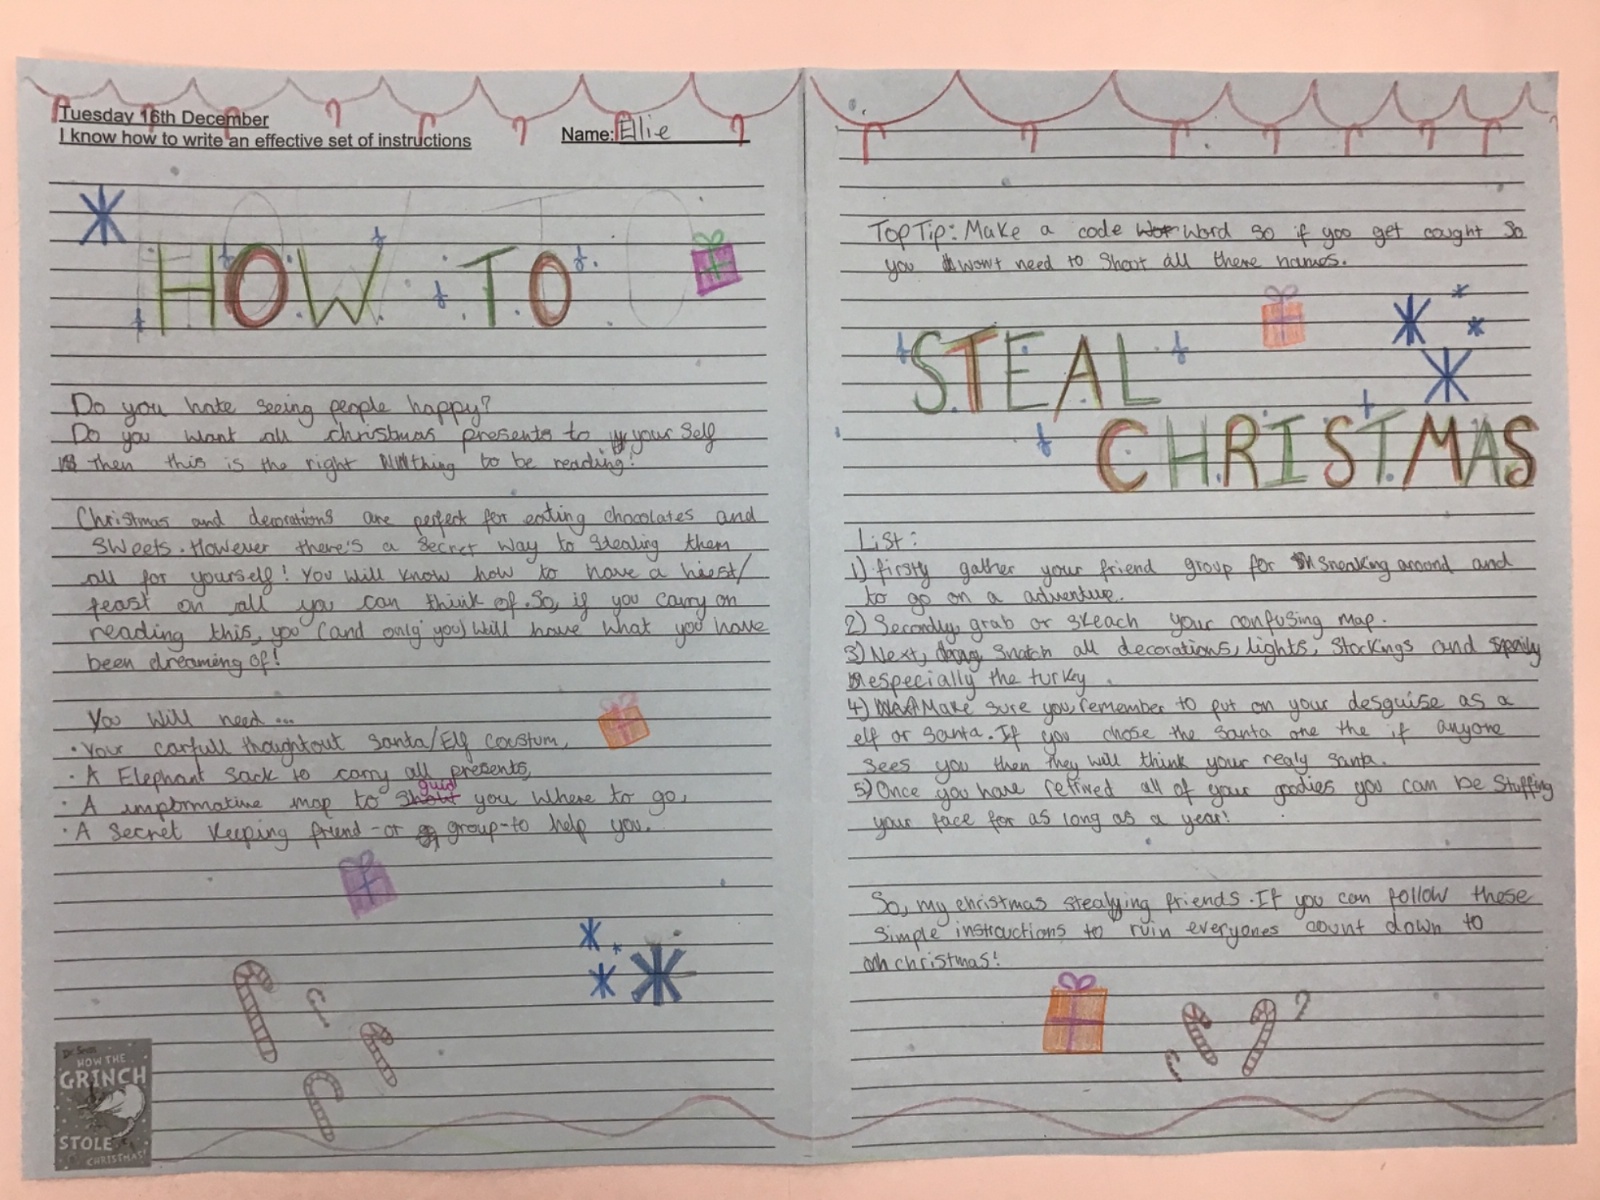 Tuesday 16th December
I know how to write an effective set of instructions
Name: Ellie
HOW TO
Do you hate seeing people happy?
Do you want all christmas presents to your self
then this is the right thing to be reading!
Christmas and decorations are perfect for eating chocolates and
sweets. However there's a secret way to stealing them
all for yourself! You will know how to have a hiest/
feast on all you can think of. So, if you carry on
reading this, you (and only you) will have what you have
been dreaming of!
You will need ...
• Your carfull thoughtout Santa/Elf coustum,
• A Elephant sack to carry all presents,
• A imformative map to guid you where to go,
• A secret keeping friend -or group- to help you.
Dr. Seuss
HOW THE
GRINCH
STOLE
CHRISTMAS!
Top Tip: Make a code word so if yoo get caught so
you wont need to shoot all there names.
STEAL
CHRISTMAS
List:
1) firstly gather your friend group for sneaking around and
to go on a adventure.
2) Secondly, grab or skeach your confusing map.
3) Next, snatch all decorations, lights, stockings and
especially the turkey.
4) Make sure you, remember to put on your desguise as a
elf or santa. If you chose the santa one the if anyone
sees you then they will think your realy santa.
5) Once you have retired all of your goodies you can be stuffing
your face for as long as a year!
So, my christmas stealying friends. If you can follow these
simple instructions to ruin everyones count down to
christmas!